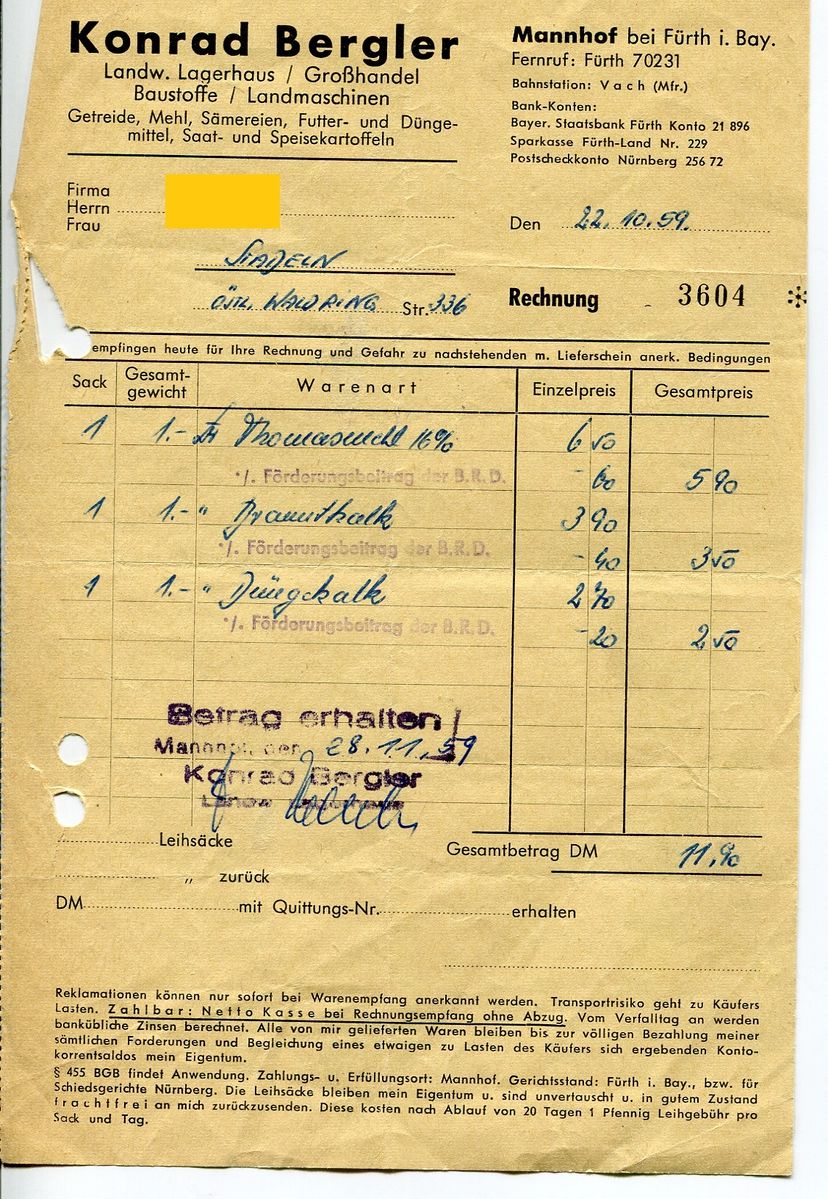 Konrad Bergler
Landw. Lagerhaus / Großhandel
Baustoffe / Landmaschinen
Getreide, Mehl, Sämereien, Futter- und Dünge-
mittel, Saat- und Speisekartoffeln
Mannhof bei Fürth i. Bay.
Fernruf: Fürth 70231
Bahnstation: Vach (Mfr.)
Bank-Konten:
Bayer. Staatsbank Fürth Konto 21 896
Sparkasse Fürth-Land Nr. 229
Postscheckkonto Nürnberg 256 72
Firma
Herrn
Frau
Den 22.10.59.
Stadeln
Östl. Waldring Str. 336
Rechnung 3604
empfingen heute für Ihre Rechnung und Gefahr zu nachstehenden m. Lieferschein anerk. Bedingungen
Sack Gesamt-gewicht Warenart Einzelpreis Gesamtpreis
1 1.- Thomasmehl 16% 6 50
·/. Förderungsbeitrag der B.R.D. - 60 5 90
1 1.- " Branntkalk 3 90
·/. Förderungsbeitrag der B.R.D. - 40 3 50
1 1.- " Düngekalk 2 70
·/. Förderungsbeitrag der B.R.D. - 20 2 50
Betrag erhalten
Mannhof, den 28.11.59
Konrad Bergler
Landw.
Leihsäcke
Gesamtbetrag DM 11,90
" zurück
DM mit Quittungs-Nr. erhalten
Reklamationen können nur sofort bei Warenempfang anerkannt werden. Transportrisiko geht zu Käufers
Lasten. Zahlbar: Netto Kasse bei Rechnungsempfang ohne Abzug. Vom Verfalltag an werden
bankübliche Zinsen berechnet. Alle von mir gelieferten Waren bleiben bis zur völligen Bezahlung meiner
sämtlichen Forderungen und Begleichung eines etwaigen zu Lasten des Käufers sich ergebenden Konto-
korrentsaldos mein Eigentum.
§ 455 BGB findet Anwendung. Zahlungs- u. Erfüllungsort: Mannhof. Gerichtsstand: Fürth i. Bay., bzw. für
Schiedsgerichte Nürnberg. Die Leihsäcke bleiben mein Eigentum u. sind unvertauscht u. in gutem Zustand
frachtfrei an mich zurückzusenden. Diese kosten nach Ablauf von 20 Tagen 1 Pfennig Leihgebühr pro
Sack und Tag.